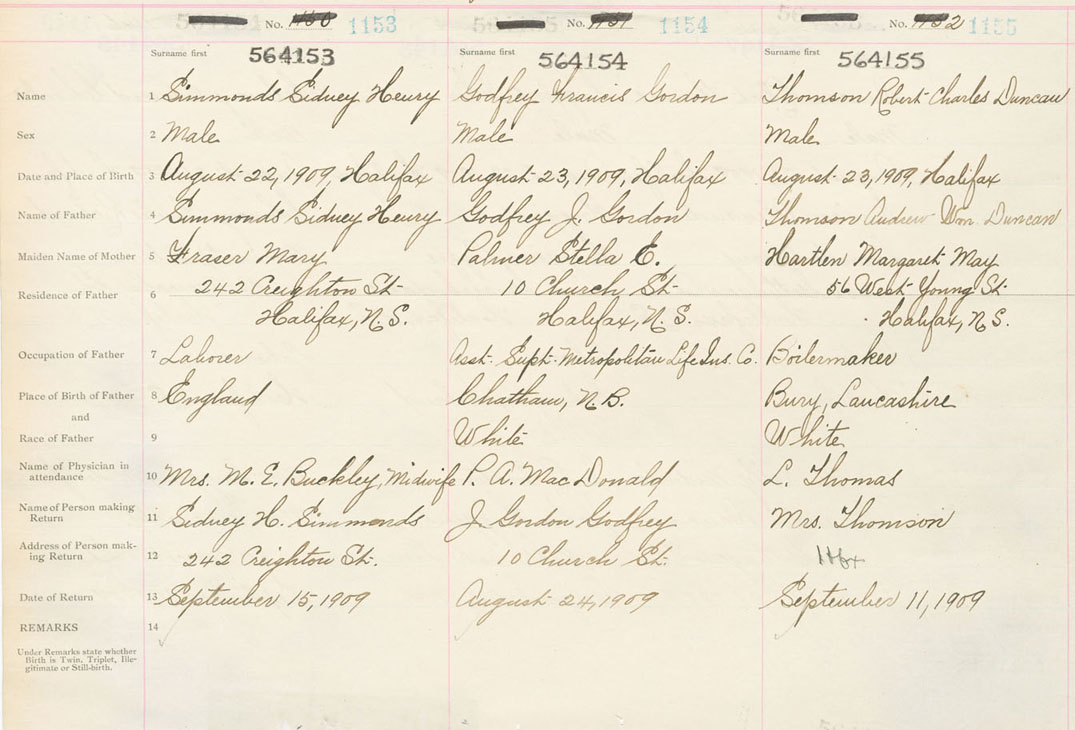 No. 1153 No. 1154 No. 1155
Surname first Surname first Surname first
564153 564154 564155
Name 1 Simmonds Sidney Henry Godfrey Francis Gordon Thomson Robert Charles Duncan
Sex 2 Male Male Male
Date and Place of Birth 3 August 22, 1909, Halifax August 23, 1909, Halifax August 23, 1909, Halifax
Name of Father 4 Simmonds Sidney Henry Godfrey J. Gordon Thomson Andrew Wm. Duncan
Maiden Name of Mother 5 Fraser Mary Palmer Stella E. Hartlen Margaret May
Residence of Father 6 242 Creighton St. 10 Church St. 56 West Young St.
Halifax, N.S. Halifax, N.S. Halifax, N.S.
Occupation of Father 7 Laborer Asst. Supt. Metropolitan Life Ins. Co. Boilermaker
Place of Birth of Father 8 England Chatham, N.B. Bury, Lancashire
and
Race of Father 9 White White
Name of Physician in
attendance 10 Mrs. M. E. Buckley, Midwife P. A. MacDonald L. Thomas
Name of Person making
Return 11 Sidney H. Simmonds J. Gordon Godfrey Mrs. Thomson
Address of Person mak-
ing Return 12 242 Creighton St. 10 Church St. Hfx
Date of Return 13 September 15, 1909 August 24, 1909 September 11, 1909
REMARKS 14
Under Remarks state whether
Birth is Twin, Triplet, Ille-
gitimate or Still-birth.